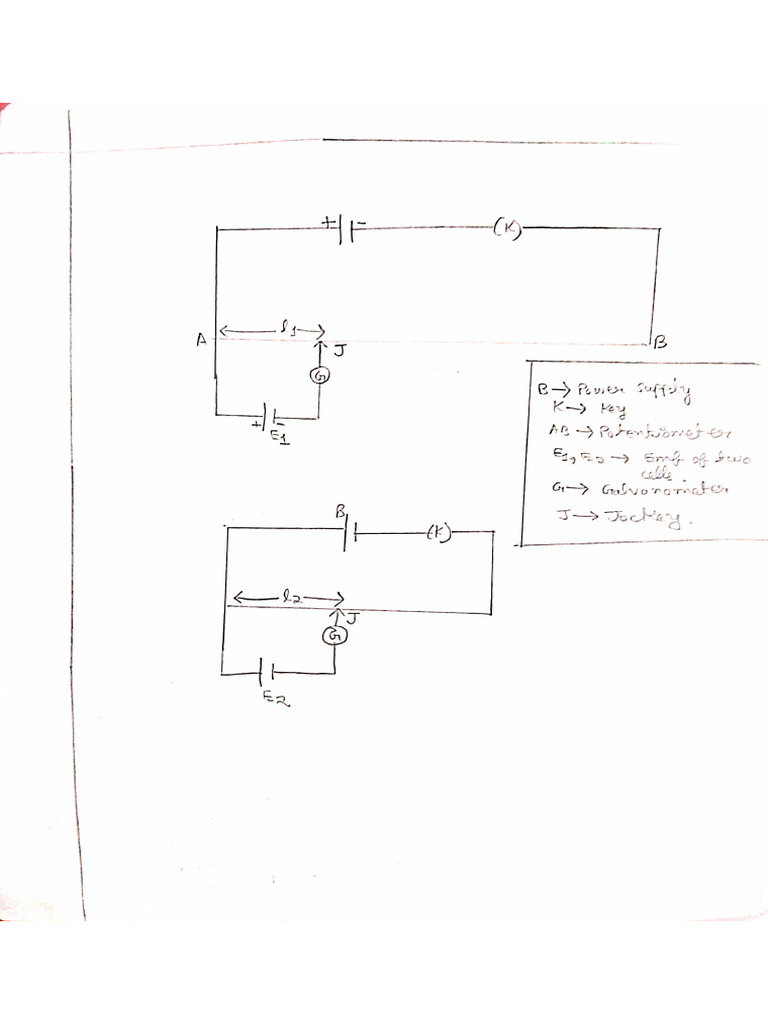 + -
(K)
A
l1
J
B
G
+ -
E1
B → Power Supply
K → Key
AB → Potentiometer
E1, E2 → Emf of two
cells.
G → Galvonometer
J → Jockey.
B
(K)
l2
J
G
E2